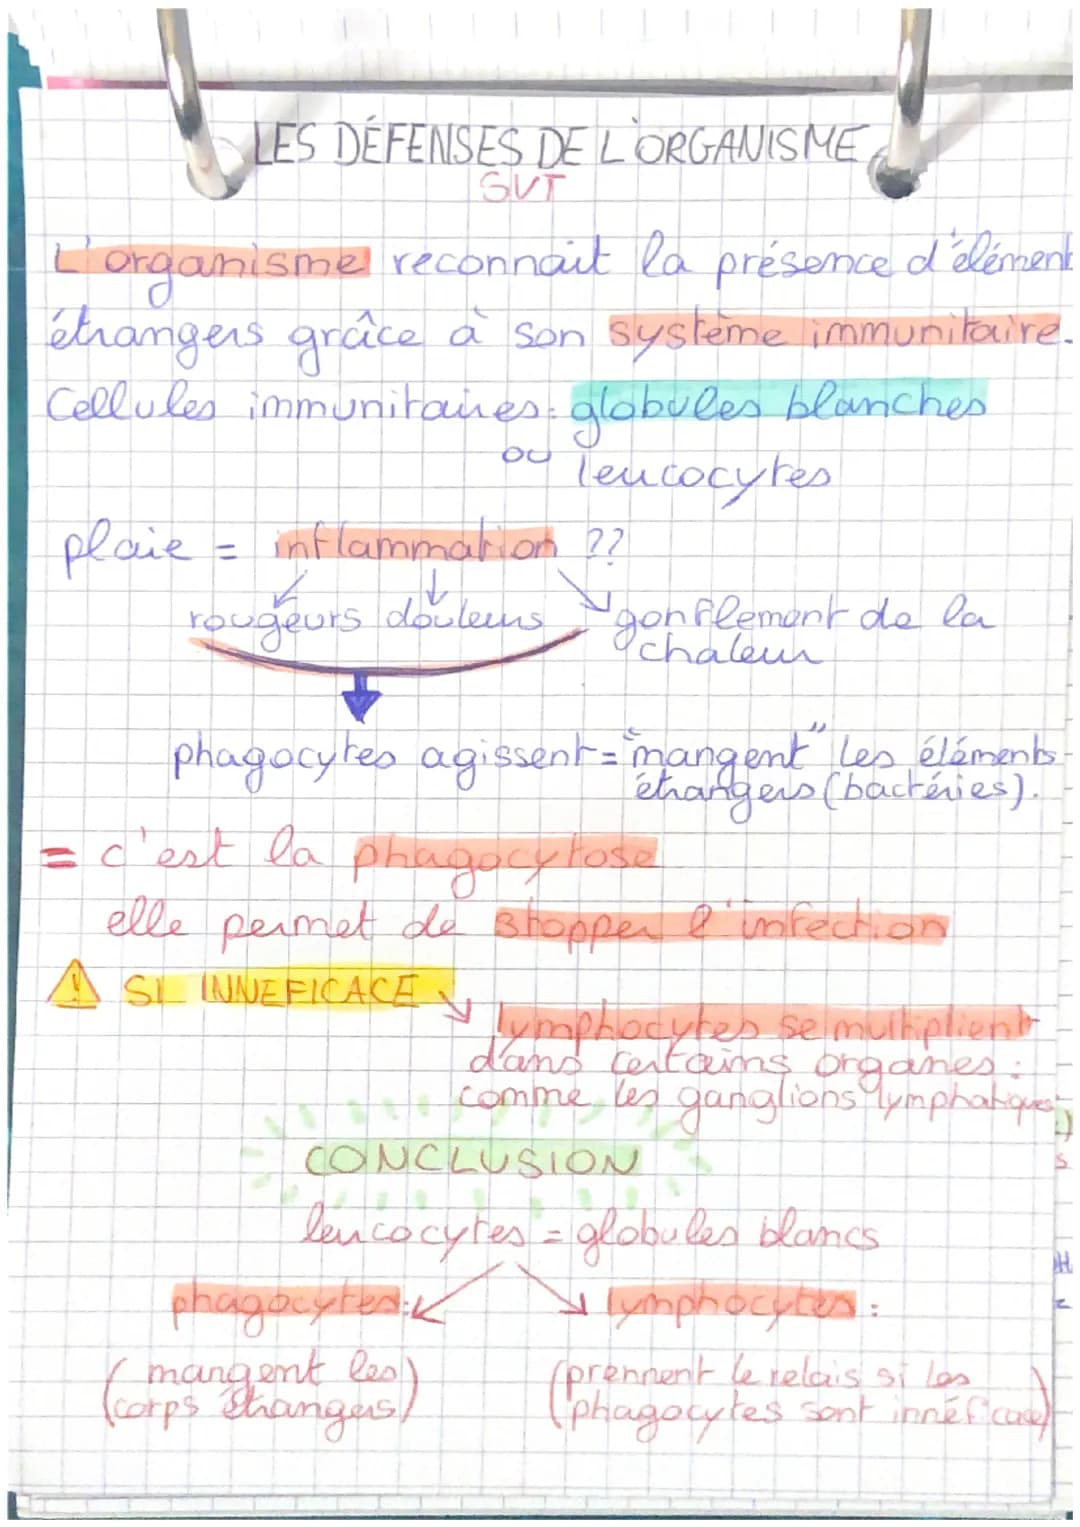 LES DÉFENSES DE L'ORGANISME
SVT
L'organisme reconnait la présence d'élément
étrangers grâce à son système immunitaire.
Cellules immunitaires: globules blanches
ou leucocytes
plaie = inflammation ??
rougeurs douleurs gonflement de la
chaleur
phagocytes agissent = "mangent" les éléments
étrangers (bactéries).
= c'est la phagocytose
elle permet de stopper l'infection
! SI INNEFICACE
lymphocytes se multiplient
dans certains organes :
comme les ganglions lymphatiques
CONCLUSION
leucocytes = globules blancs
phagocytes: lymphocytes :
(mangent les (prennent le relais si les
corps étrangers) phagocytes sont innéficace)